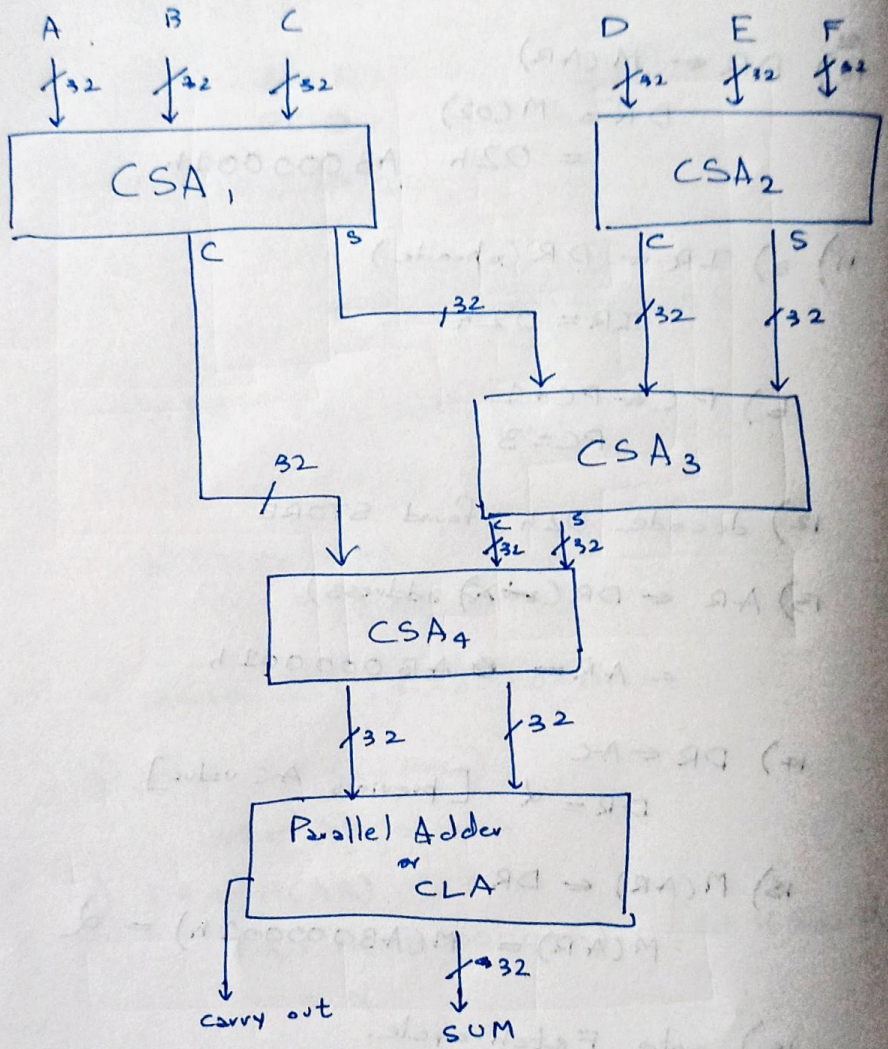 A B C D E F
32 32 32 32 32 32
CSA1 CSA2
C S C S
32 32 32
CSA3
32
C S
32 32
CSA4
32 32
Parallel Adder
or
CLA
32
carry out
SUM